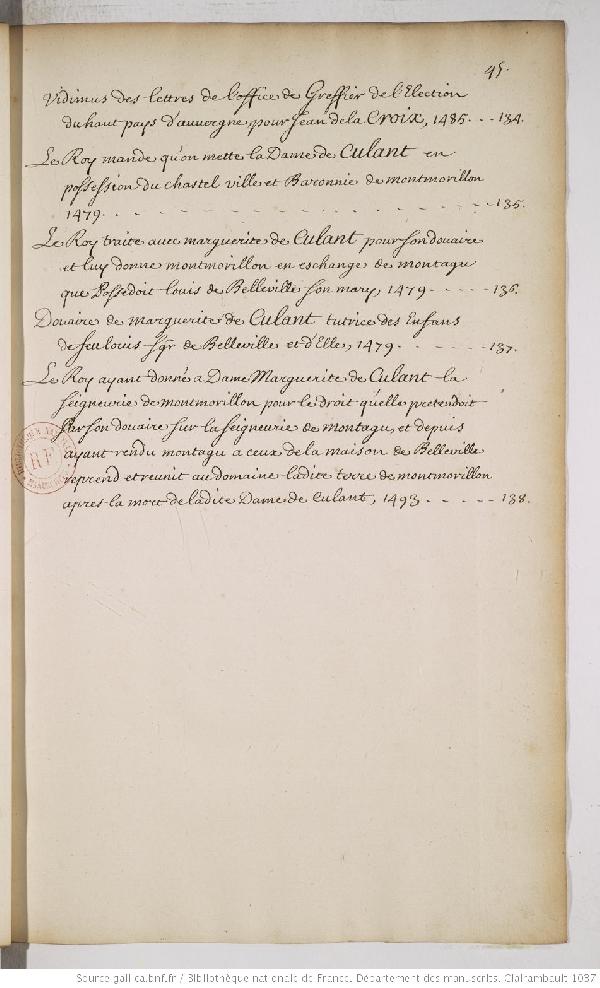 45.
Vidimus des lettres de l'office de Greffier de l'Election
du haut pays d'auvergne pour Jean de la Croix, 1485. - - 134.
Le Roy mande qu'on mette la Dame de Culant en
possession du chastel ville et Baronnie de montmorillon
1479. - - - - - - - - - - - - - - - 135.
Le Roy traite avec marguerite de Culant pour son douaire
et luy donne montmorillon en eschange de montagu
que Possedoit louis de Belleville son mary, 1479 - - - - - 136.
Douaire de marguerite de Culant tutrice des Enfans
de feu louis Sgr. de Belleville et d'Elle, 1479. - - - - - - 137.
Le Roy ayant donné a Dame Marguerite de Culant la
seigneurie de montmorillon pour le droit qu'elle pretendoit
sur son douaire sur la seigneurie de montagu, et depuis
ayant rendu montagu a ceux de la maison de Belleville
reprend et reunit au domaine ladite terre de montmorillon
apres la mort de ladite Dame de Culant, 1493 - - - - - 138.
RF
Source gallica.bnf.fr / Bibliothèque nationale de France. Département des manuscrits. Clairambault 1037